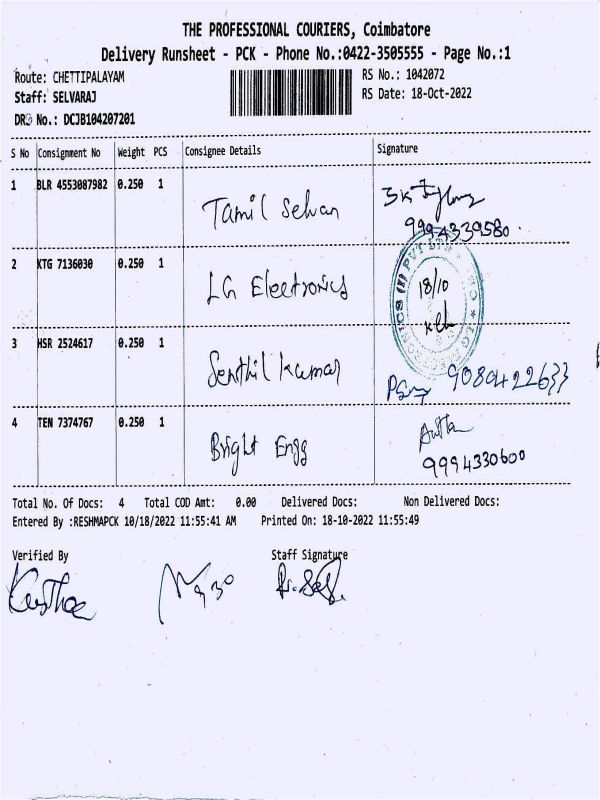 THE PROFESSIONAL COURIERS, Coimbatore
Delivery Runsheet - PCK - Phone No.:0422-3505555 - Page No.:1
Route: CHETTIPALAYAM
RS No.: 1042072
Staff: SELVARAJ
RS Date: 18-Oct-2022
DRS No.: DCJB104207201
S No Consignment No Weight PCS Consignee Details Signature
1 BLR 4553087982 0.250 1 Tamil Selvan
9994339580
2 KTG 7136030 0.250 1 LG Electronics 18/10
3 HSR 2524617 0.250 1 Senthil kumar
9080422633
4 TEN 7374767 0.250 1 Bright Engg
9994330600
Total No. Of Docs: 4 Total COD Amt: 0.00 Delivered Docs: Non Delivered Docs:
Entered By :RESHMAPCK 10/18/2022 11:55:41 AM Printed On: 18-10-2022 11:55:49
Verified By Staff Signature